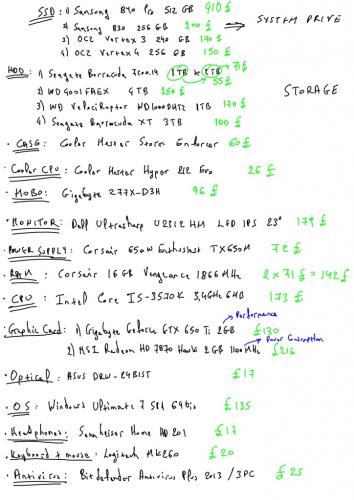 SSD: 1) Samsung 840 Pro 512 GB 410 £
2) Samsung 830 256 GB 200 £ → SYSTEM DRIVE
3) OCZ Vertex 3 240 GB 170 £
4) OCZ Vertex 4 256 GB 150 £
HDD: 1) Seagate Barracuda 7200.14 1TB x 2TB 71 £
55 £
2) WD4001FAEX 4TB 250 £
STORAGE
3) WD VelociRaptor WD1000DHTZ 1TB 170 £
4) Seagate Barracuda XT 3TB 100 £
• CASE: Cooler Master Storm Enforcer 60 £
• Cooler CPU: Cooler Master Hyper 212 Evo 26 £
• MOBO: Gigabyte Z77X-D3H 96 £
• MONITOR: Dell Ultrasharp U2312HM LED IPS 23" 179 £
• POWER SUPPLY: Corsair 650W Enthusiast TX650M 72 £
• RAM: Corsair 16GB Vengeance 1866MHz 2 x 71 £ = 142 £
• CPU: Intel Core I5-3570K 3,4GHz 6MB 173 £
Performance
• Graphic Card: 1) Gigabyte Geforce GTX 650 Ti 2GB £130
Power Consumption
2) MSI Radeon HD 7870 Hawk 2GB 1100MHz £216
• Optical: ASUS DRW-24B1ST £17
• OS: Windows Ultimate 7 SP1 64bit £135
• Headphones: Sennheiser Home HD 201 £17
• Keyboard + mouse: Logitech MK260 £20
• Antivirus: Bitdefender Antivirus Plus 2013 / 3PC £25